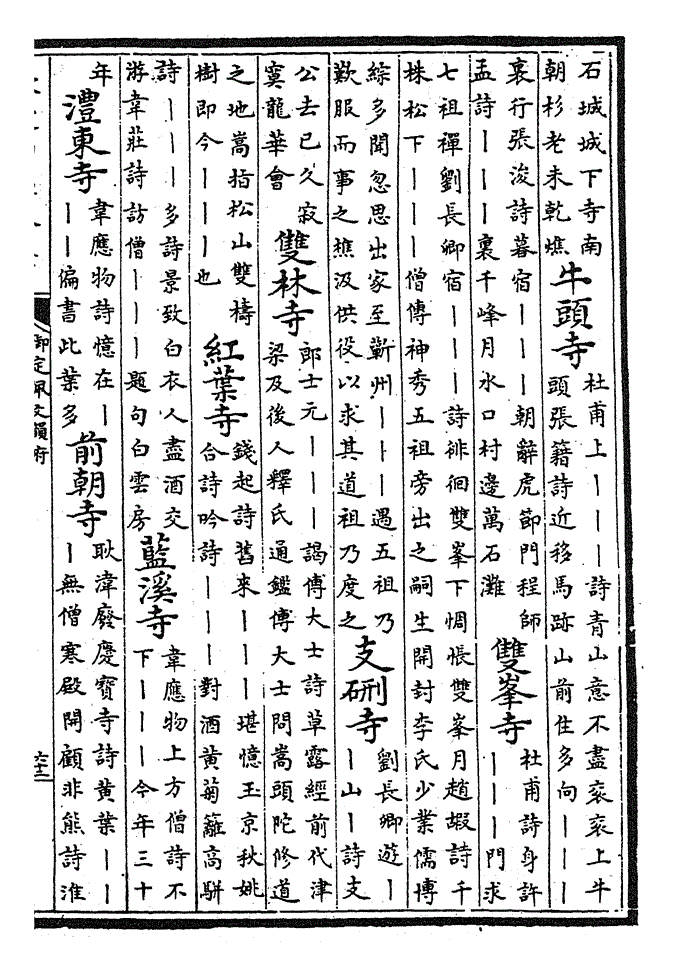 石城城下寺南
朝杉老未乾燋
牛頭寺
杜甫上丨丨丨詩青山意不盡衮衮上牛
頭張籍詩近移馬跡山前住多向丨丨丨
裏行張浚詩暮宿丨丨丨朝辭虎節門程師
孟詩丨丨丨裏千峰月水口村邊萬石灘
雙峯寺
杜甫詩身許
丨丨丨門求
七祖禪劉長卿宿丨丨丨詩徘徊雙峯下惆悵雙峯月趙嘏詩千
株松下丨丨丨僧傳神秀五祖旁出之嗣生開封李氏少業儒博
綜多聞忽思出家至蘄州丨丨丨遇五祖乃
歎服而事之樵汲供役以求其道祖乃度之
支硎寺
劉長卿遊丨
丨山丨詩支
公去已久寂
寞龍華會
雙林寺
郎士元丨丨丨謁傅大士詩草露經前代津
梁及後人釋氏通鑑傅大士問嵩頭陀修道
之地嵩指松山雙檮
樹即今丨丨丨也
紅葉寺
錢起詩舊來丨丨丨堪憶玉京秋姚
合詩吟詩丨丨丨對酒黄菊籬高駢
詩丨丨丨多詩景致白衣人盡酒交
游韋莊詩訪僧丨丨丨題句白雲房
藍溪寺
韋應物上方僧詩不
下丨丨丨今年三十
年
澧東寺
韋應物詩憶在丨
丨丨偏書此葉多
前朝寺
耿湋廢慶寶寺詩黄葉丨丨
丨無僧寒殿開顧非熊詩淮
御定佩文韻府